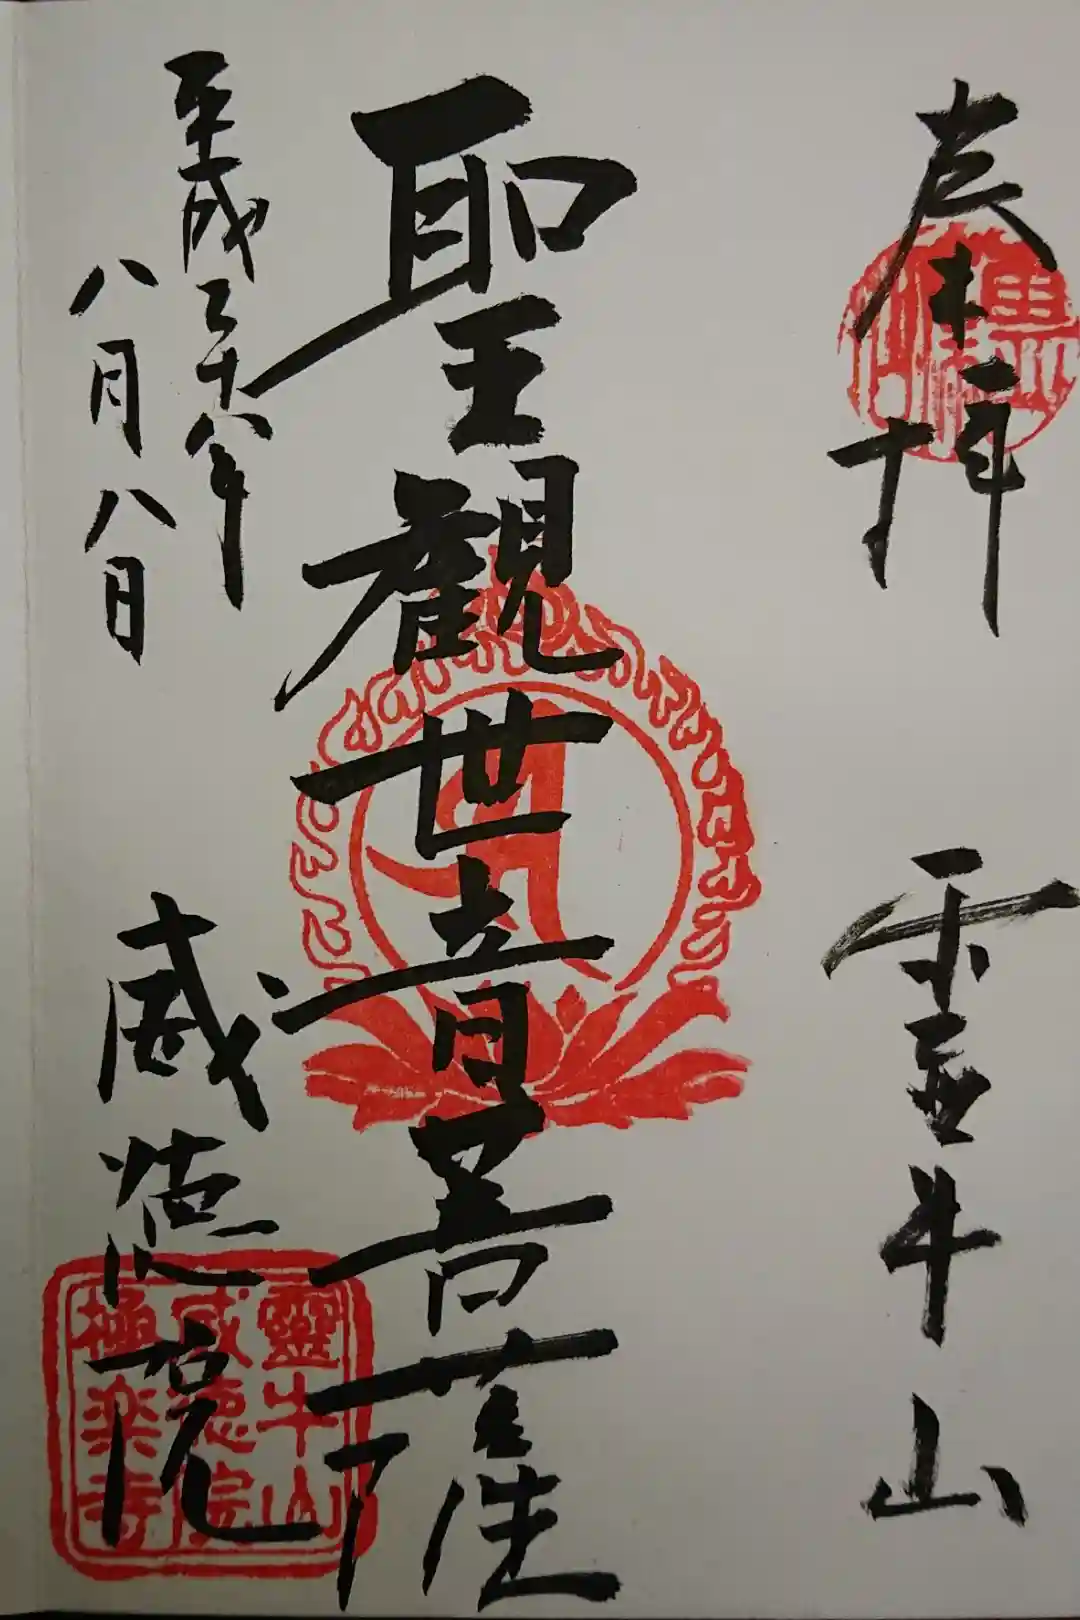 奉拝
霊牛山
聖観世音菩薩
平成二十八年
八月八日
威徳院
靈牛山
威徳院
極楽寺